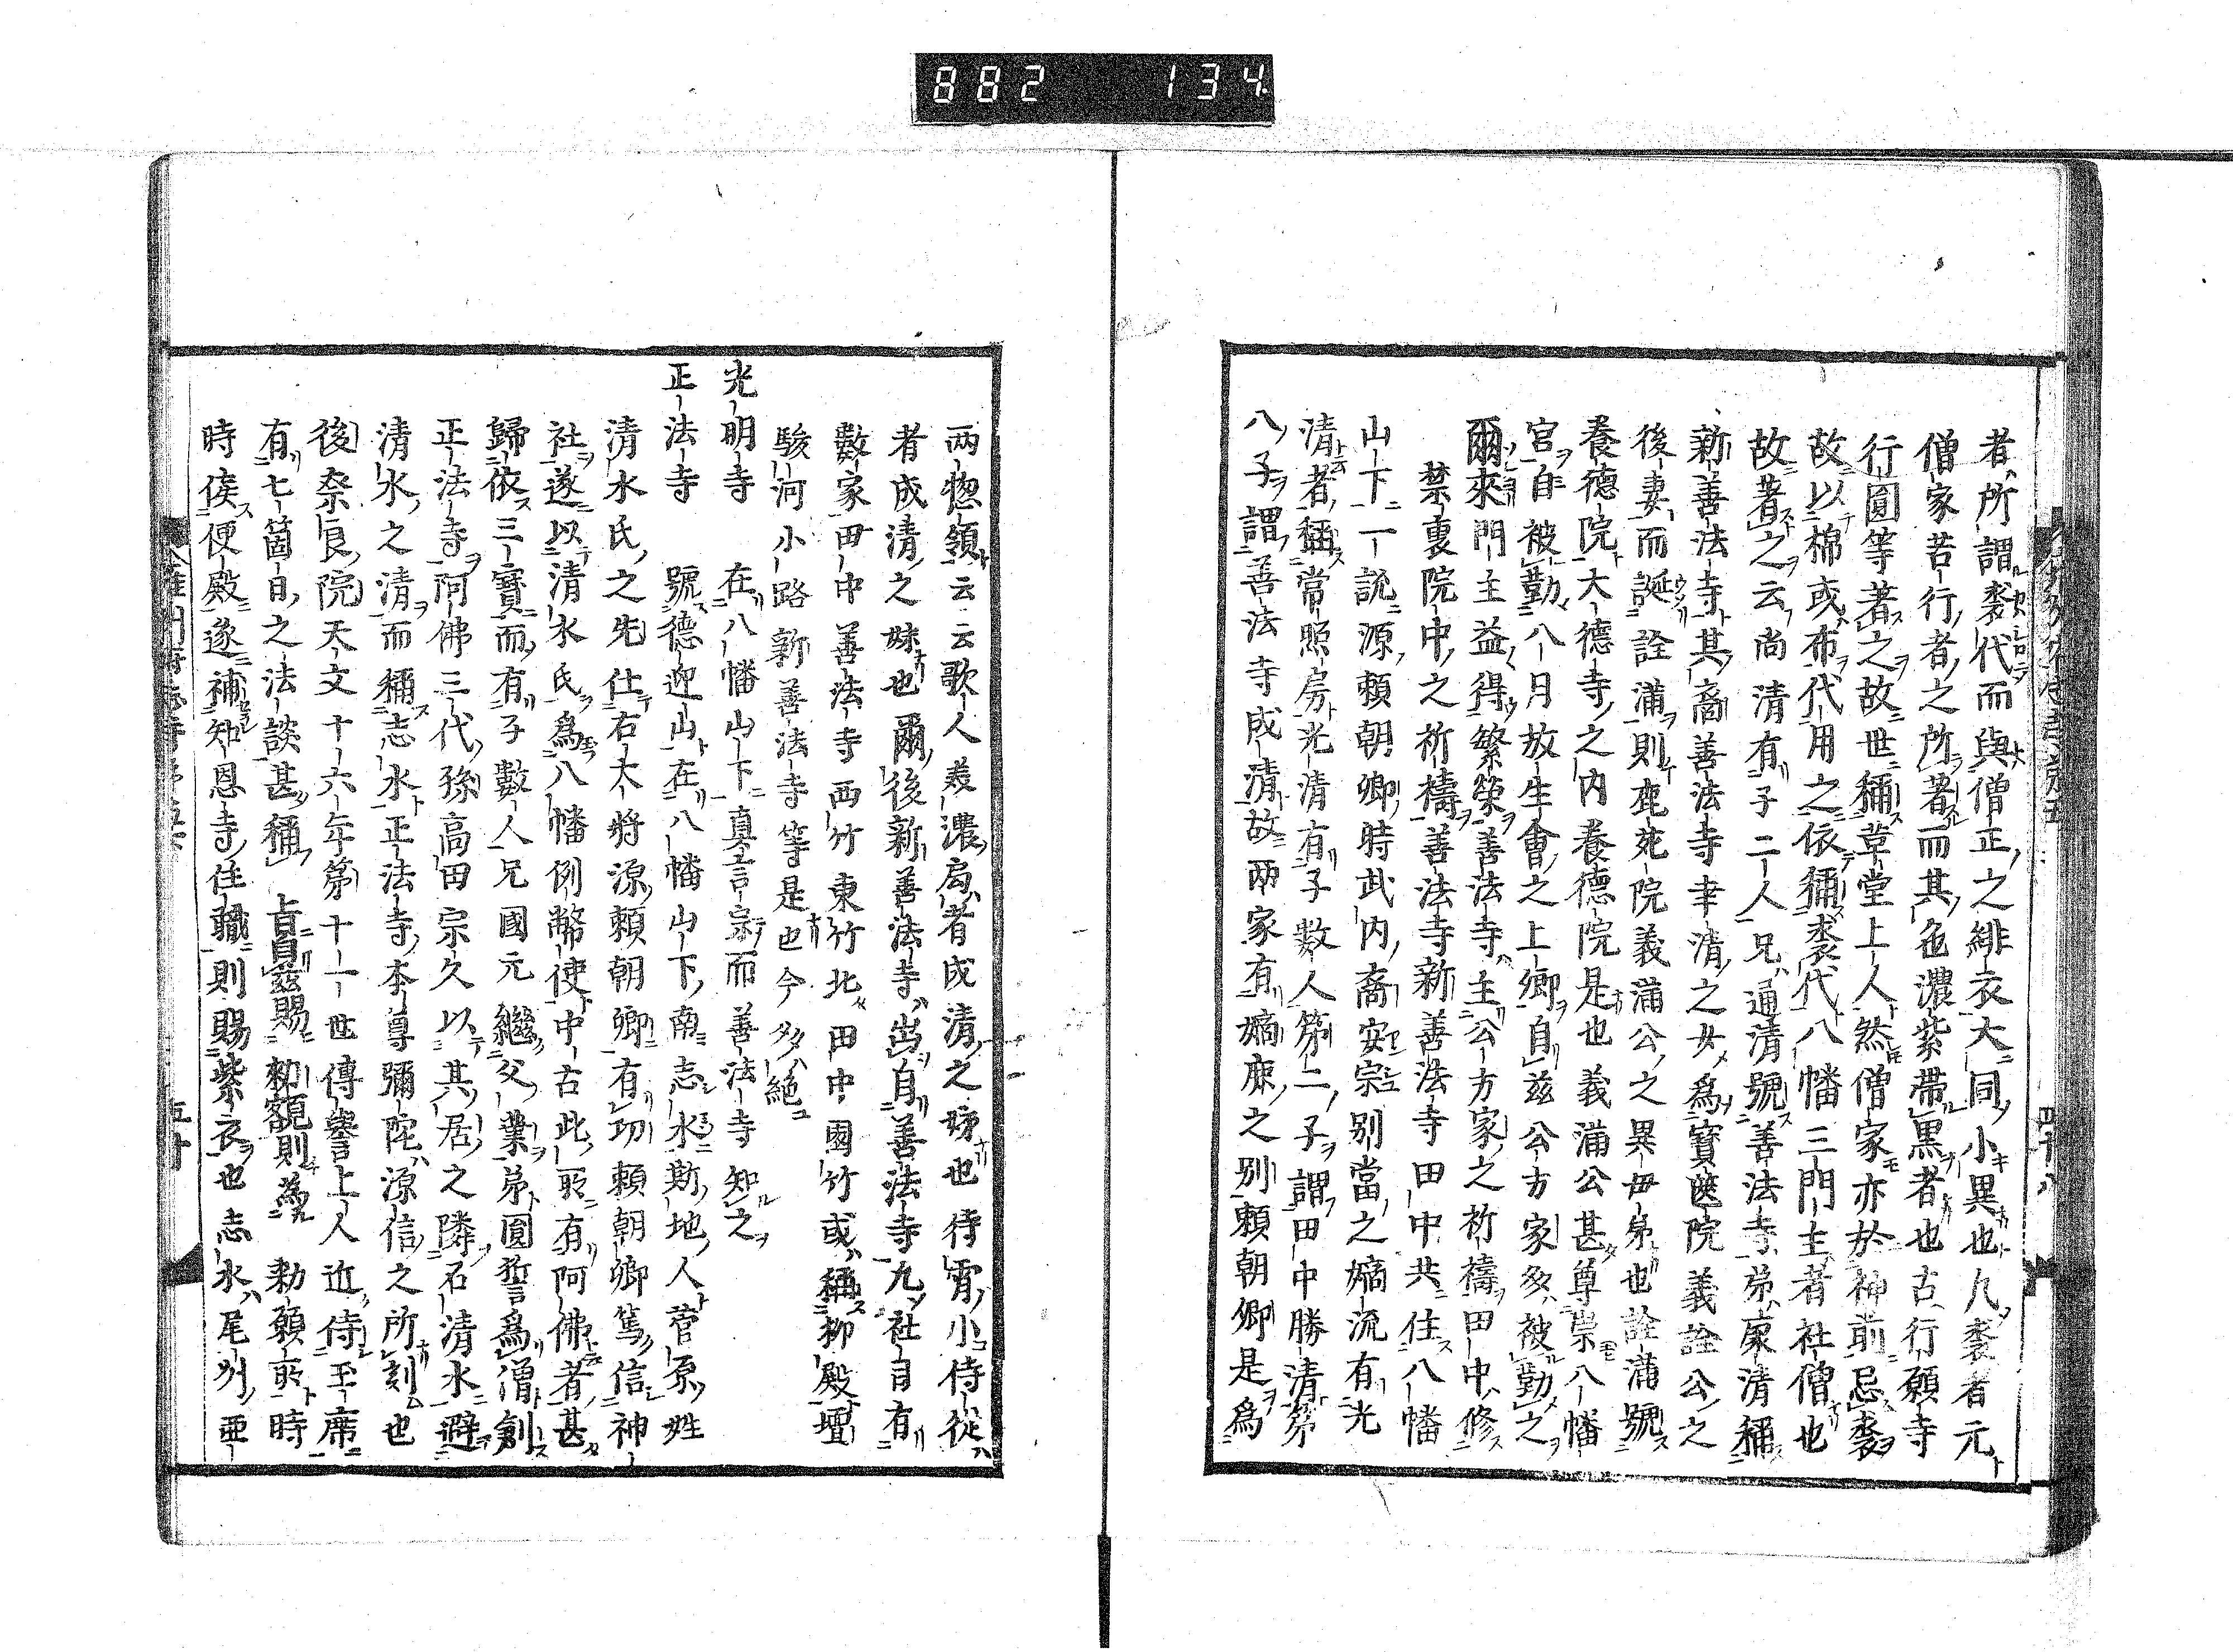 882 134
者所謂裘代而與僧正之緋衣大同小異也凡裘者元
僧家苦行者之所著而其色濃紫帶黒者也古行願寺
行圓等著之故世稱草堂上人然僧家亦於神前忌裘
故以棉或布代用之依稱裘代八幡三門主者社僧也
故著之云尚清有子二人兄通清號善法寺弟康清稱
新善法寺其裔善法寺幸清之女爲寶篋院義詮公之
後妻而誕詮滿則鹿苑院義滿公之異母弟也詮滿號
養德院大德寺之内養德院是也義滿公甚尊崇八幡
宮自被勤八月放生會之上卿自茲公方家多被勤之
爾來門主益得繁榮善法寺主公方家之祈禱田中修
禁裏院中之祈禱善法寺新善法寺田中共住八幡
山下一説源賴朝卿時武内裔安宗別當之嫡流有光
清者稱常照房光清有子數人第二子謂田中勝清第
八子謂善法寺成清故兩家有嫡庶之別賴朝卿是爲
両惣領云云歌人美濃局者成清之姊也待宵小侍從
者成清之妹也爾後新善法寺出自善法寺九社目有
數家田中善法寺西竹東竹北田中園竹或稱柳殿壇
駿河小路新善法寺等是也今多絕
光明寺 在八幡山下真言宗而善法寺知之
正法寺 號德迎山在八幡山下南志水斯地人菅原姓
清水氏之先仕右大将源賴朝卿有功賴朝卿篤信神
社遂以清水氏爲八幡例幣使中古此所有阿佛者甚
歸依三寶而有子數人兄國元繼父業弟圓誓爲僧創
正法寺阿佛三代孫高田宗久以其居之隣石清水避
清水之清而稱志水正法寺本尊彌陀源信之所刻也
後奈良院天文十六年第十一世傳譽上人近侍玉席
有七箇日之法談甚稱 旨自茲賜 勅額則爲 勅願所時
時侯便殿遂補知恩寺住職則賜紫衣也志水尾州亜